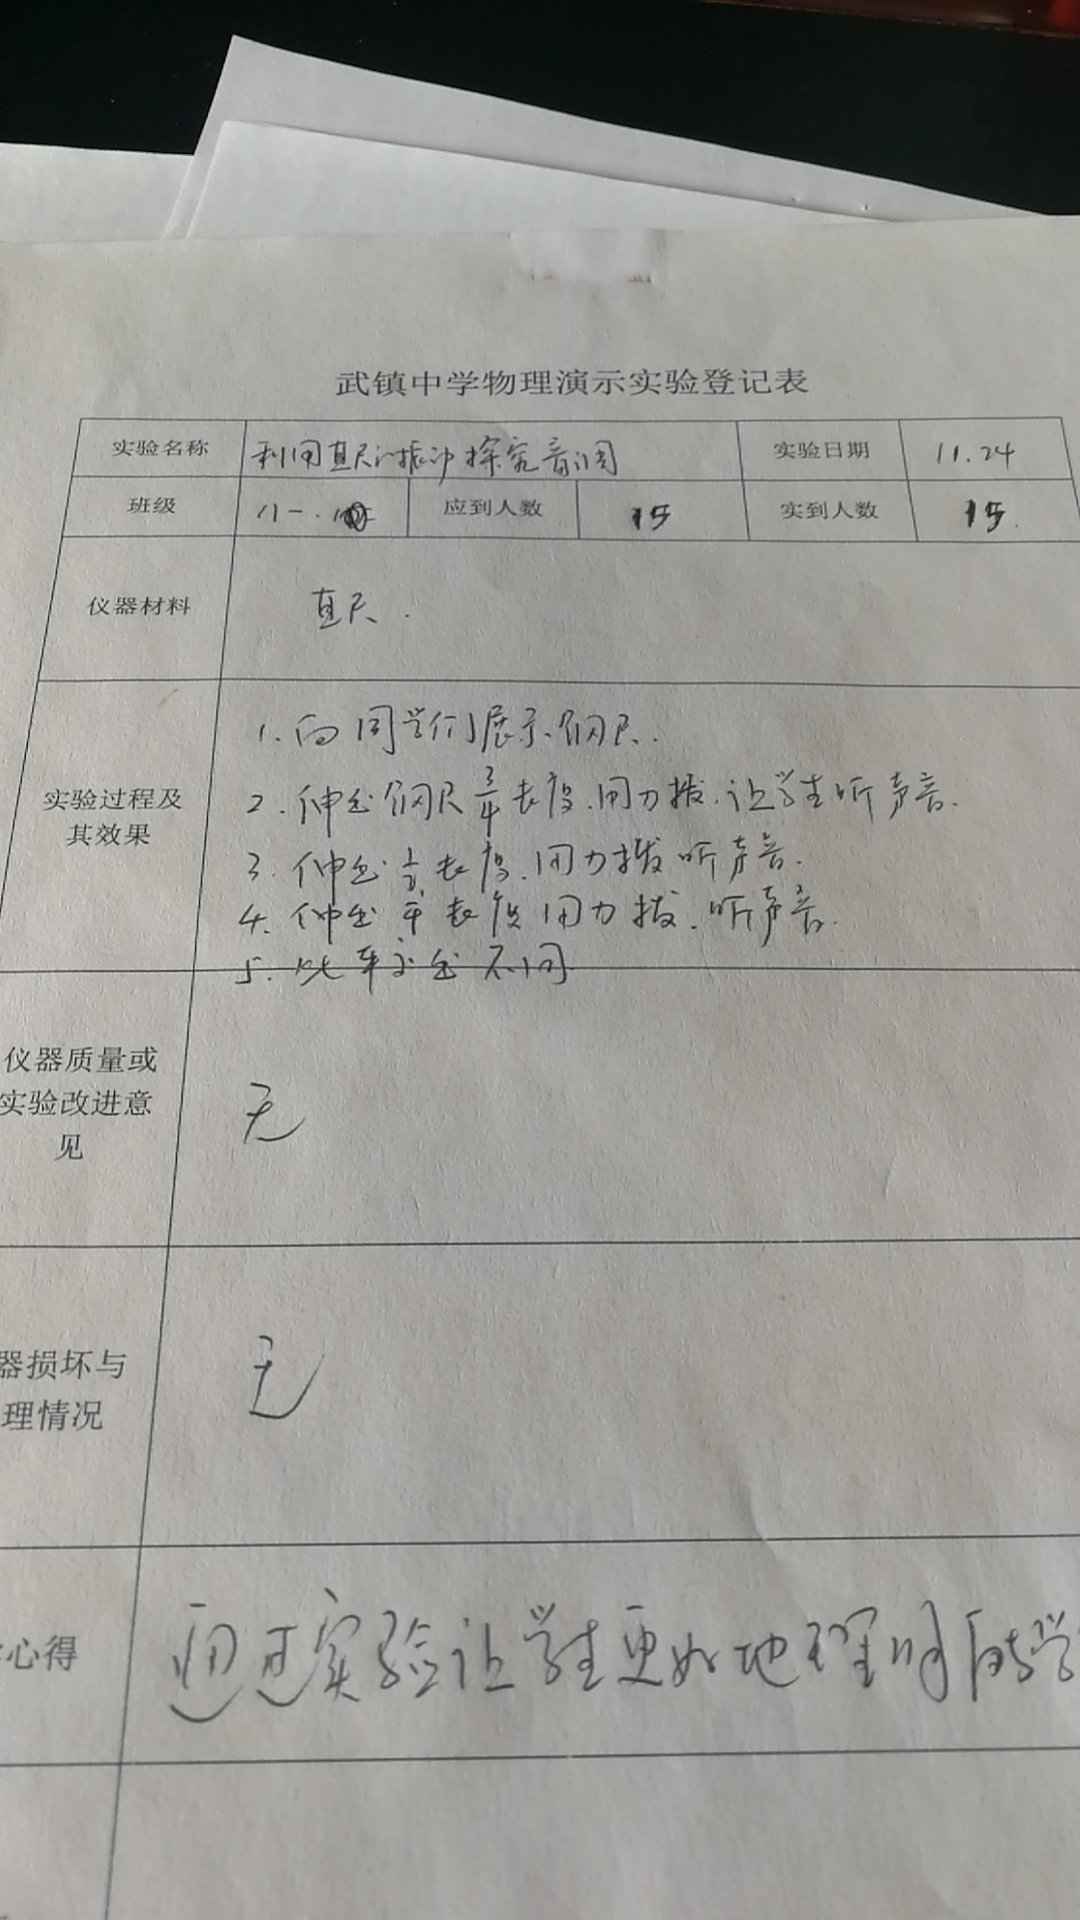 武镇中学物理演示实验登记表
实验名称 利用直尺的振动探究音调 实验日期 11.24
班级 八一. 应到人数 15 实到人数 15.
仪器材料 直尺.
实验过程及其效果
1. 向同学们展示钢尺.
2. 伸出钢尺 3/4 长度.用力拨.让学生听声音.
3. 伸出 1/2 长度.用力拨听声音.
4. 伸出 长度用力拨.听声音.
5. 比较 不同.
仪器质量或
实验改进意
见
无
器损坏与
理情况
无
心得 通过实验让学生更好地理